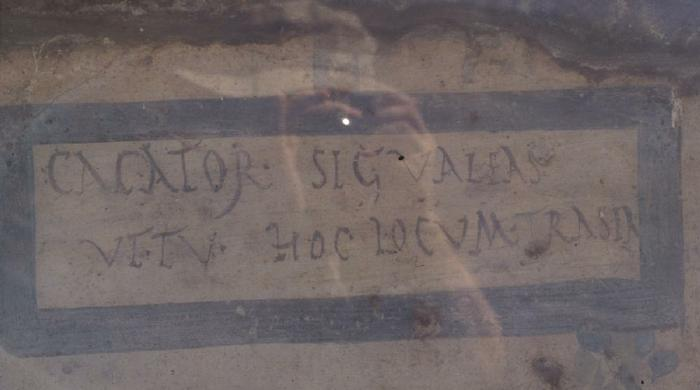 CACATOR · SIG VALEAS
VT · TV · HOC LOCVM · TRASIA